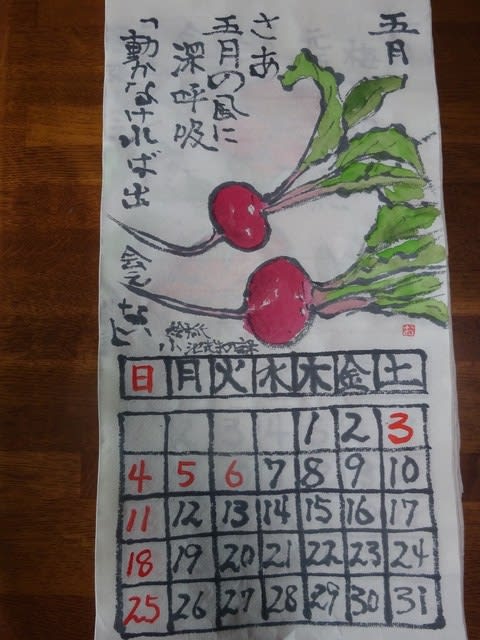 五月
さあ
五月の風に
深呼吸
「動かなければ出
会えない」
日 月 火 水 木 金 土
1 2 3
4 5 6 7 8 9 10
11 12 13 14 15 16 17
18 19 20 21 22 23 24
25 26 27 28 29 30 31